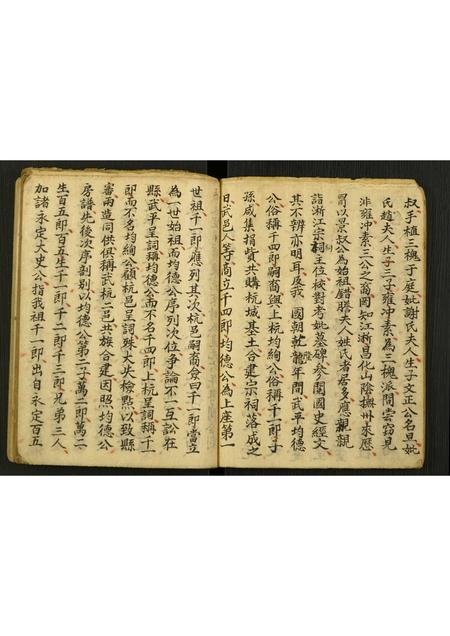 叔手植三槐于庭妣謝氏夫人生子文正公名旦妣
氏趙夫人生子三子雍冲素為三槐派間雲窃見
非雍冲素三公之裔固知江浙昌化山陰撫州來歷
胃以景叔公為始祖錯謄夫人姓氏者居多應親親
詣浙江宗祠主位被對考妣墓碑参閱國史經文
其不辨亦明耳及我國朝乾隆年間武平均德
公俗稱千四郎嗣裔與上杭均絢公俗稱千一郎子
孫咸集捐貲共購杭城基土合建宗祠落成之
日武邑人等高立千四郎均德公為上座第一
世祖千一郎應列其次杭邑嗣裔僉曰千一郎當立
為一世始祖而均德公序列次位爭論不一互訟在
縣武平呈詞稱均德公而不名千四郎上杭呈詞稱千一
郎而不名均絢公顧杭邑呈詞殊大失檢點以致縣
審兩造同供俱稱武杭二邑共族合建因照均德公
房譜此後次序剖別以均德公第二子萬一郎萬二
生百五郎百五生千一郎千二郎千三郎兄弟三人
加諸永定大史公指我祖千一郎出自永定百五